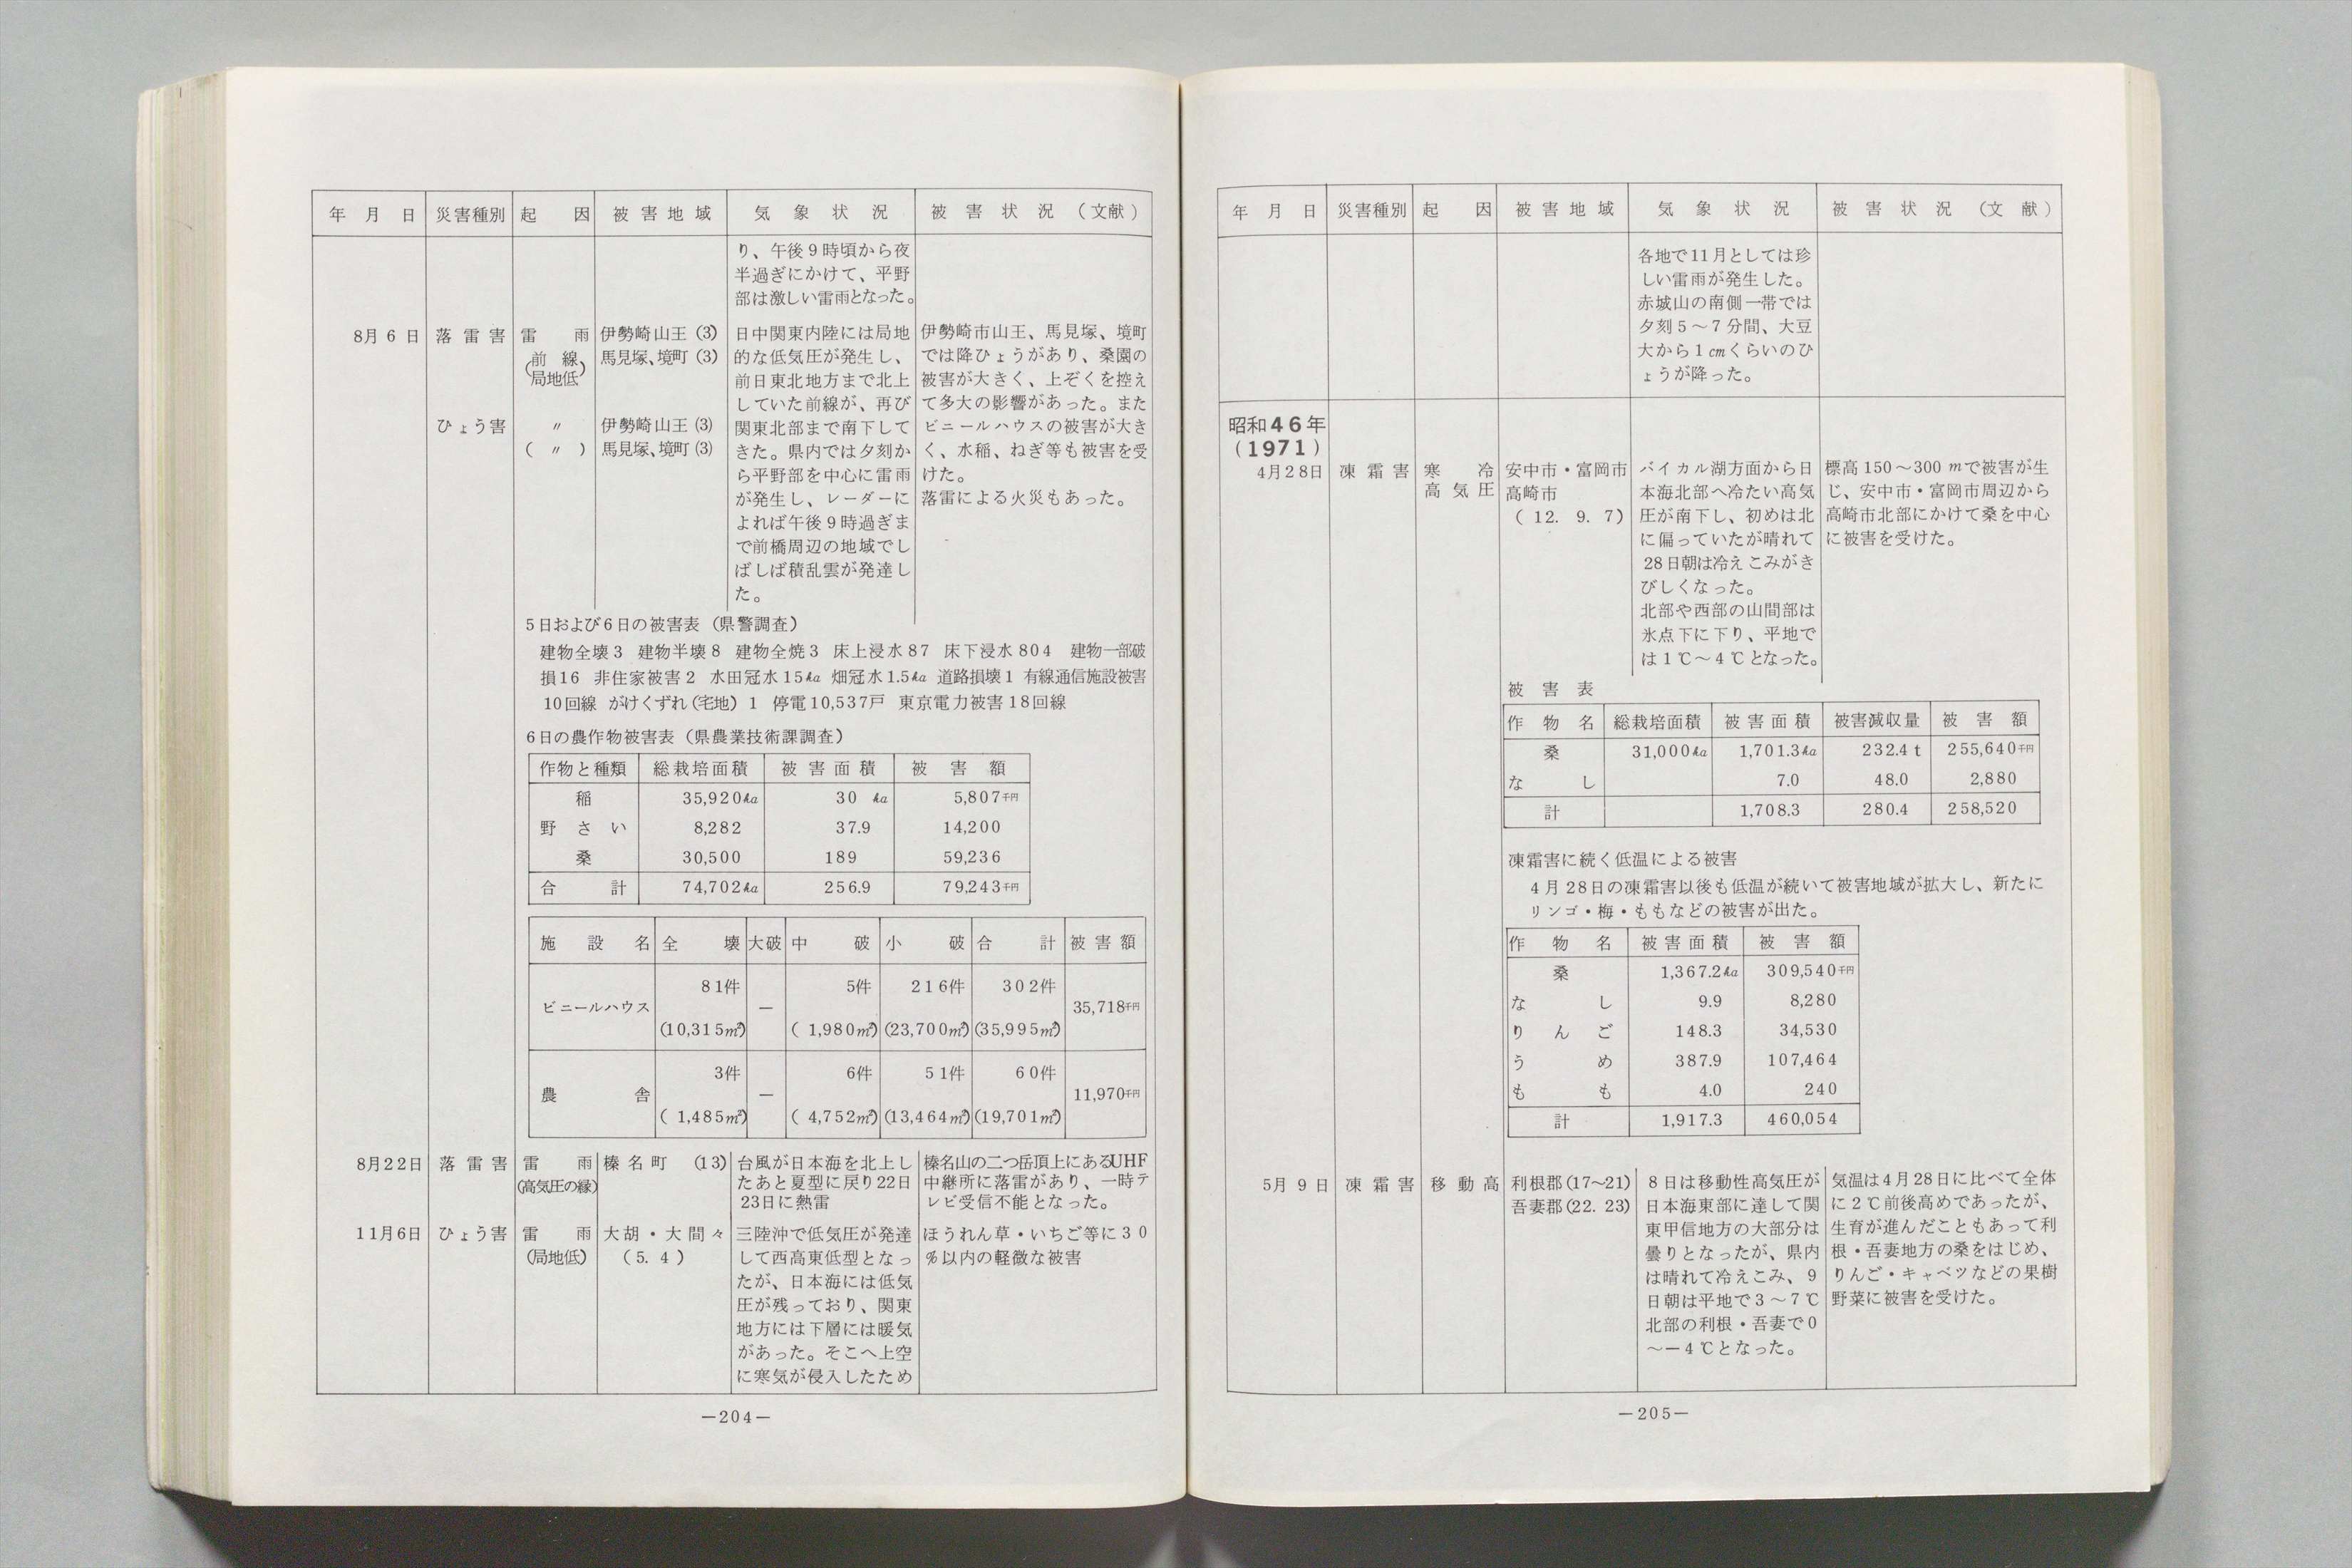 年月日 災害種別 起因 被害地域 気象状況 被害状況(文献)
り、午後9時頃から夜
半過ぎにかけて、平野
部は激しい雷雨となった。
8月6日 落雷害 雷雨
(前線
局地低)
伊勢崎山王(3)
馬見塚、境町(3)
ひょう害 〃
(〃)
伊勢崎山王(3)
馬見塚、境町(3)
日中関東内陸には局地
的な低気圧が発生し、
前日東北地方まで北上
していた前線が、再び
関東北部まで南下して
きた。県内では夕刻か
ら平野部を中心に雷雨
が発生し、レーダーに
よれば午後9時過ぎま
で前橋周辺の地域でし
ばしば積乱雲が発達し
た。
伊勢崎市山王、馬見塚、境町
では降ひょうがあり、桑園の
被害が大きく、上ぞくを控え
て多大の影響があった。また
ビニールハウスの被害が大き
く、水稲、ねぎ等も被害を受
けた。
落雷による火災もあった。
5日および6日の被害表(県警調査)
建物全壊3 建物半壊8 建物全焼3 床上浸水87 床下浸水804 建物一部破
損16 非住家被害2 水田冠水15ha 畑冠水1.5ha 道路損壊1 有線通信施設被害
10回線 がけくずれ(宅地)1 停電10,537戸 東京電力被害18回線
6日の農作物被害表(県農業技術課調査)
作物と種類 総栽培面積 被害面積 被害額
稲 35,920ha 30 ha 5,807千円
野さい 8,282 37.9 14,200
桑 30,500 189 59,236
合計 74,702ha 256.9 79,243千円
施設名 全壊 大破 中破 小破 合計 被害額
81件 5件 216件 302件
ビニールハウス — 35,718千円
(10,315㎡) (1,980㎡) (23,700㎡) (35,995㎡)
3件 6件 51件 60件
農舎 — 11,970千円
(1,485㎡) (4,752㎡) (13,464㎡) (19,701㎡)
8月22日 落雷害 雷雨
(高気圧の縁)
榛名町 (13)
台風が日本海を北上し
たあと夏型に戻り22日
23日に熱雷
榛名山の二つ岳頂上にあるUHF
中継所に落雷があり、一時テ
レビ受信不能となった。
11月6日 ひょう害 雷雨
(局地低)
大胡・大間々
(5. 4)
三陸沖で低気圧が発達
して西高東低型となっ
たが、日本海には低気
圧が残っており、関東
地方には下層には暖気
があった。そこへ上空
に寒気が侵入したため
ほうれん草・いちご等に30
%以内の軽微な被害
—204—
年月日 災害種別 起因 被害地域 気象状況 被害状況(文献)
各地で11月としては珍
しい雷雨が発生した。
赤城山の南側一帯では
夕刻5～7分間、大豆
大から1cmくらいのひ
ょうが降った。
昭和46年
(1971)
4月28日 凍霜害 寒冷
高気圧
安中市・富岡市
高崎市
(12. 9. 7)
バイカル湖方面から日
本海北部へ冷たい高気
圧が南下し、初めは北
に偏っていたが晴れて
28日朝は冷えこみがき
びしくなった。
北部や西部の山間部は
氷点下に下り、平地で
は1℃～4℃となった。
標高150～300mで被害が生
じ、安中市・富岡市周辺から
高崎市北部にかけて桑を中心
に被害を受けた。
被害表
作物名 総栽培面積 被害面積 被害減収量 被害額
桑 31,000ha 1,701.3ha 232.4t 255,640千円
なし 7.0 48.0 2,880
計 1,708.3 280.4 258,520
凍霜害に続く低温による被害
4月28日の凍霜害以後も低温が続いて被害地域が拡大し、新たに
リンゴ・梅・ももなどの被害が出た。
作物名 被害面積 被害額
桑 1,367.2ha 309,540千円
なし 9.9 8,280
りんご 148.3 34,530
うめ 387.9 107,464
もも 4.0 240
計 1,917.3 460,054
5月9日 凍霜害 移動高
利根郡(17～21)
吾妻郡(22. 23)
8日は移動性高気圧が
日本海東部に達して関
東甲信地方の大部分は
曇りとなったが、県内
は晴れて冷えこみ、9
日朝は平地で3～7℃
北部の利根・吾妻で0
～－4℃となった。
気温は4月28日に比べて全体
に2℃前後高めであったが、
生育が進んだこともあって利
根・吾妻地方の桑をはじめ、
りんご・キャベツなどの果樹
野菜に被害を受けた。
—205—